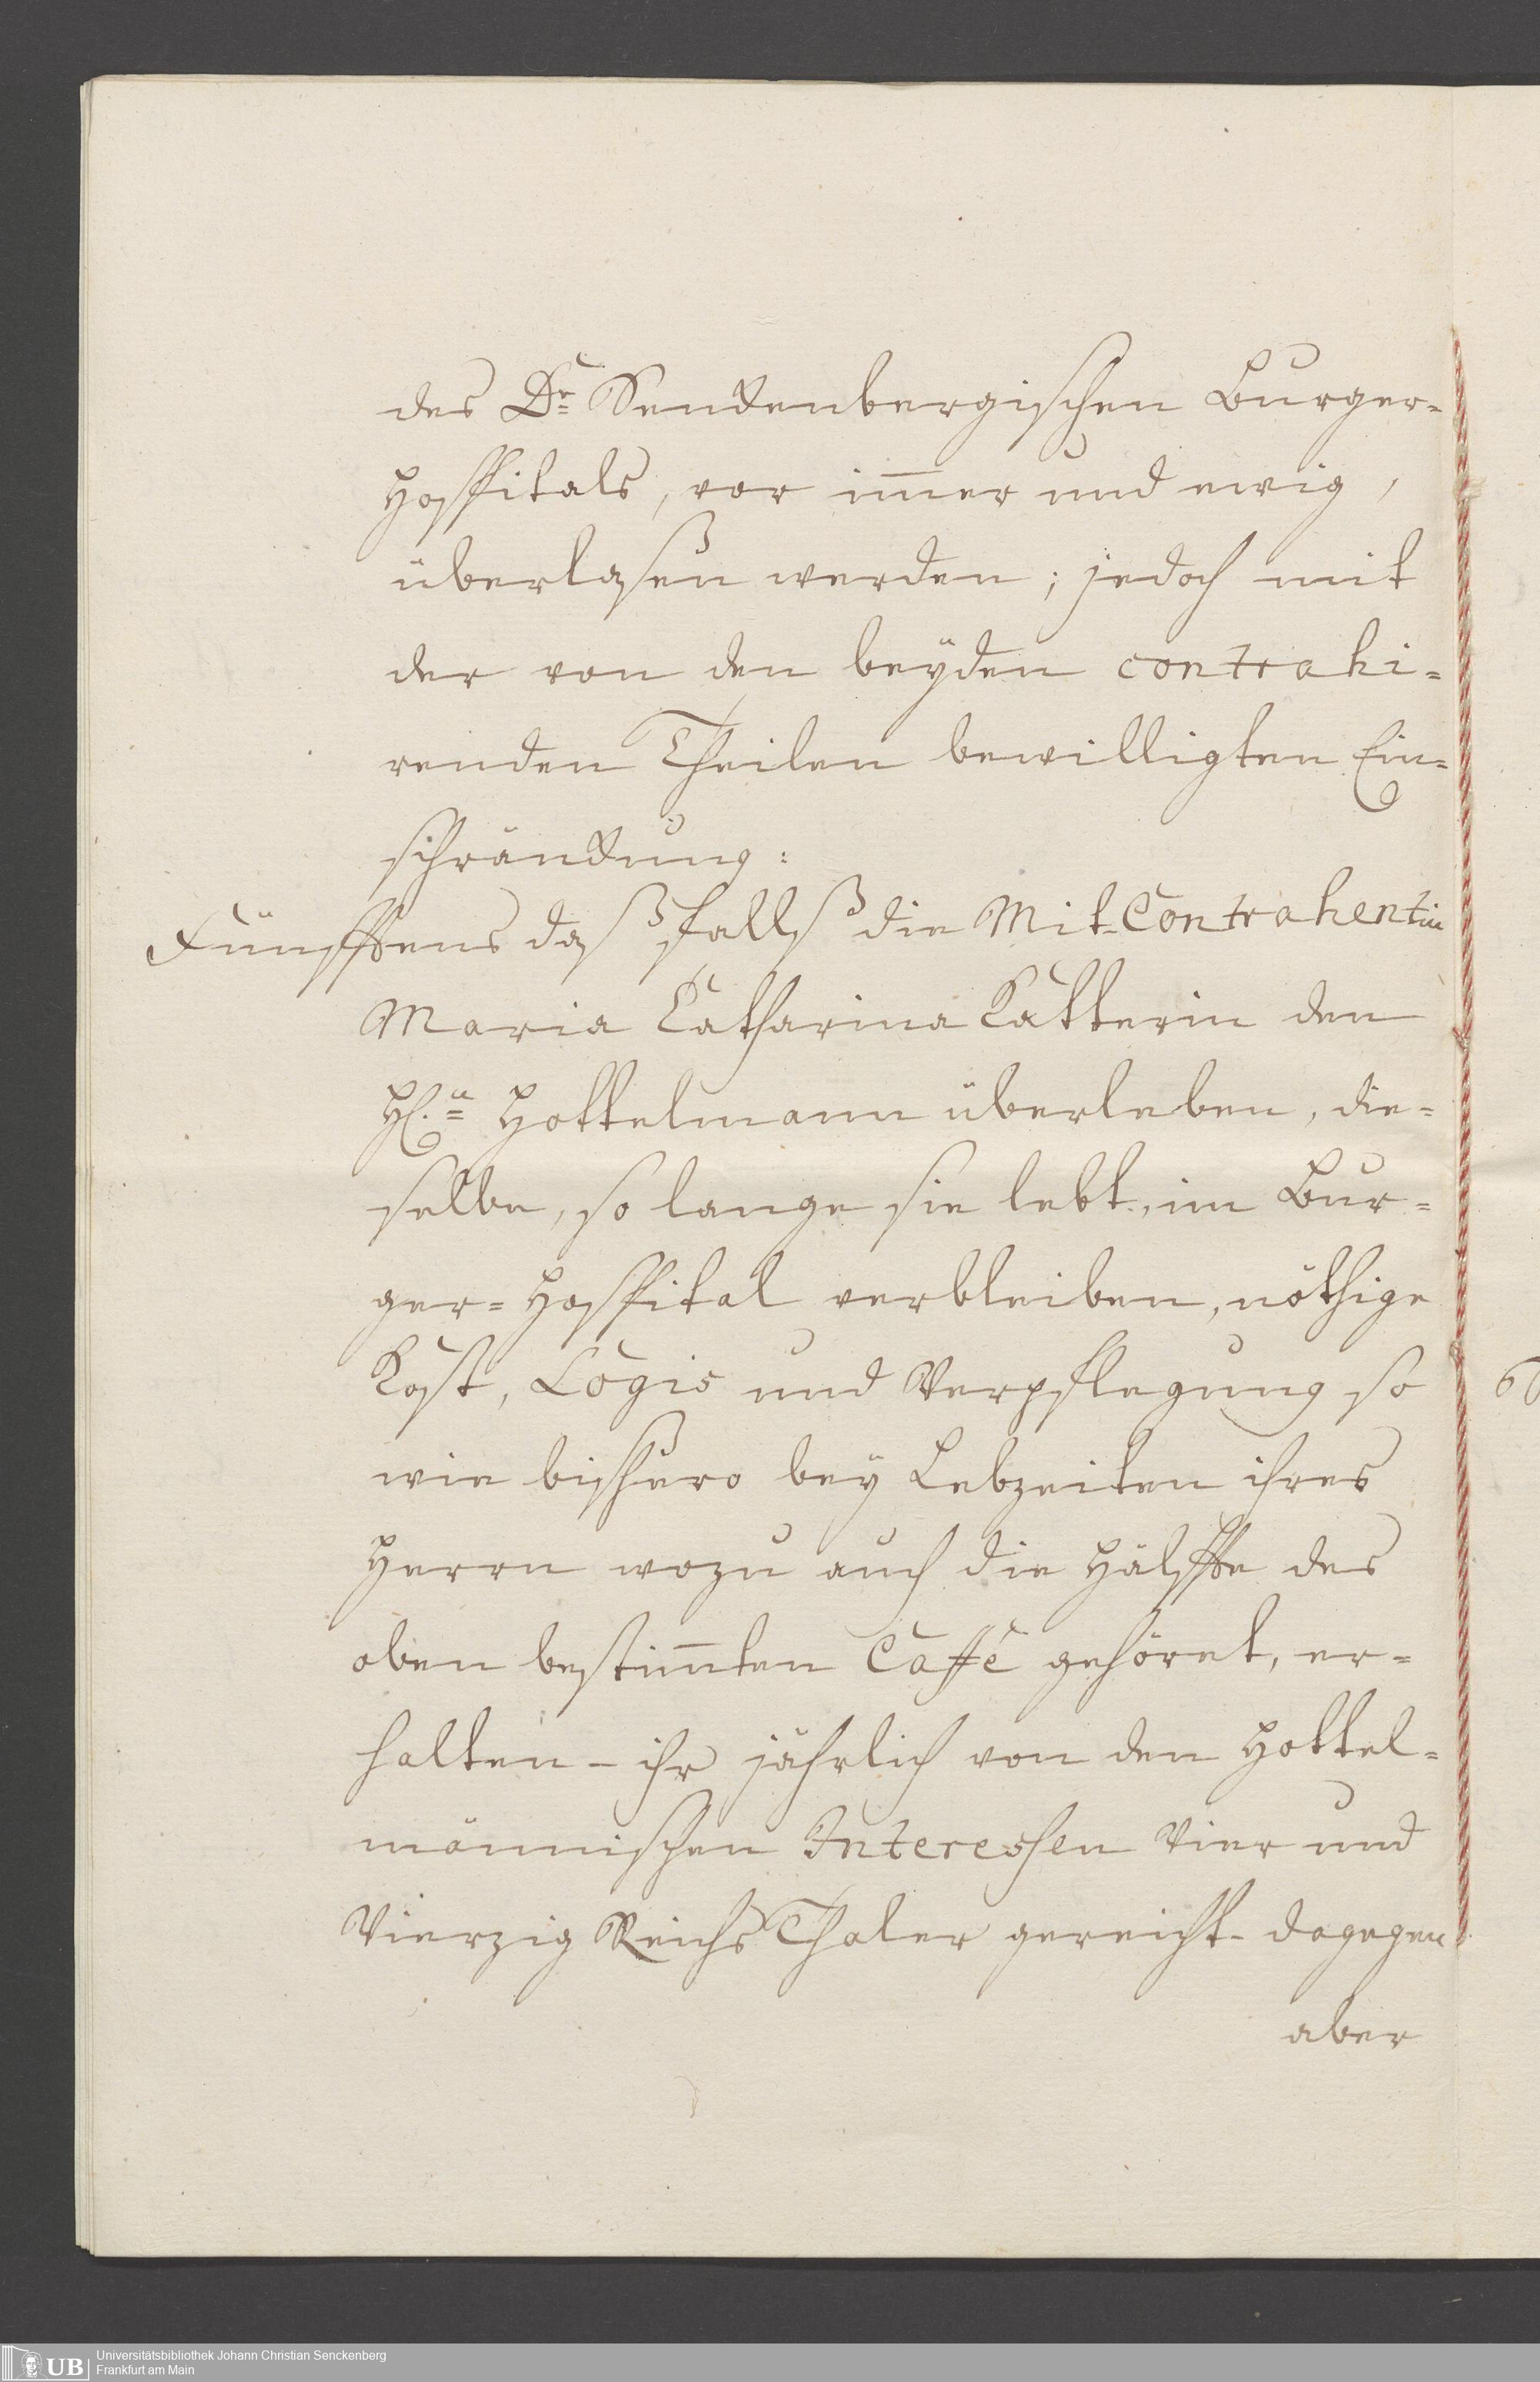 des Dr. Senckenbergischen Burger-
Hospitals, vor im̅er und ewig,
überlaßen werden; jedoch mit
der von den beÿden contrahi-
renden Theilen bewilligten Ein-
schränckung:
Fünfftens daß falls die Mit-Contrahentin
Maria Catharina Katterin den
H.n Hottelmann überleben, die-
selbe, so lange sie lebt, im Bur-
ger-Hospital verbleiben, nöthige
Kost, Logis und Verpflegung so
wie bishero beÿ Lebzeiten ihres
Herrn wozu auch die Hälffte des
oben bestim̅ten Caffé gehöret, er-
halten - ihr jährlich von den Hottel-
männischen Interessen Vier und
Vierzig Reichs Thaler gereicht - dagegen
aber
UB Universitätsbibliothek Johann Christian Senckenberg
Frankfurt am Main